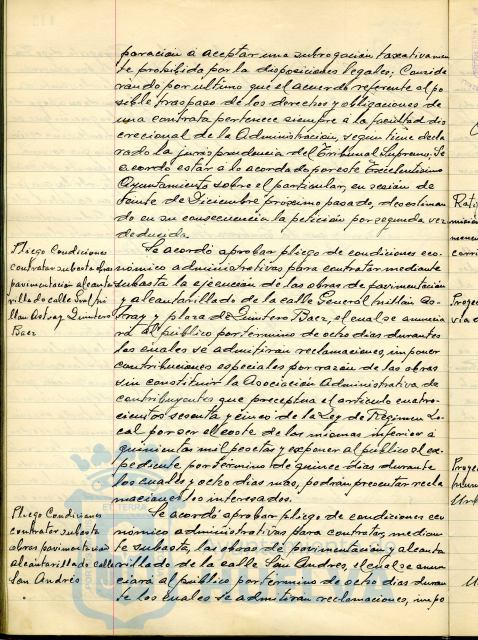 paración á aceptar una subrogación taxativamen
te prohibida por la disposiciones legales; Conside
rando por ultimo que el acuerdo referente al po
sible traspaso de los derechos y obligaciones de
una contrata pertenece siempre á la facultad dis
crecional de la Administración, según tiene decla
rado la jurisprudencia del Tribunal Supremo, Se
acordo estar á lo acordado por este Excelentisimo
Ayuntamiento sobre el particular, en sesión de
veinte de Diciembre próximo pasado, desestiman
do en su consecuencia la petición por segunda vez
deducida.
Pliego Condiciones
contratar subasta obras
pavimentación alcanta
rillado calle Gral Mi
llan Astray Quintero
Baez
Se acordó aprobar pliego de condiciones eco-
nómico administrativas para contratar mediante
subasta la ejecución de las obras de pavimentación
y alcantarillado de la calle General Millán As-
tray y plaza de Quintero Baez, el cual se anuncia
rá al público por termino de ocho dias durantes
los cuales se admitiran reclamaciones, imponer
contribuciones especiales por razón de las obras
sin constituir la Asociación Administrativa de
contribuyentes que preceptua el articulo cuatro-
cientos sesenta y cinco de la Ley de Regimen Lo-
cal por ser el coste de las mismas inferior á
quinientas mil pesetas y exponer al público el ex-
pediente por termino de quince dias durante
los cuales y ocho dias mas, podrán presentar recla
maciones los interesados.
Pliego Condiciones
contratar subasta
obras pavimentación
alcantarillado calle
San Andrés
Se acordó aprobar pliego de condiciones eco
nómico administrativas para contratar, median
te subasta, las obras de pavimentación y alcanta
rillado de la calle San Andres, el cual se anun
ciará al público, por termino de ocho dias duran
te los cuales se admitiran reclamaciones, impo